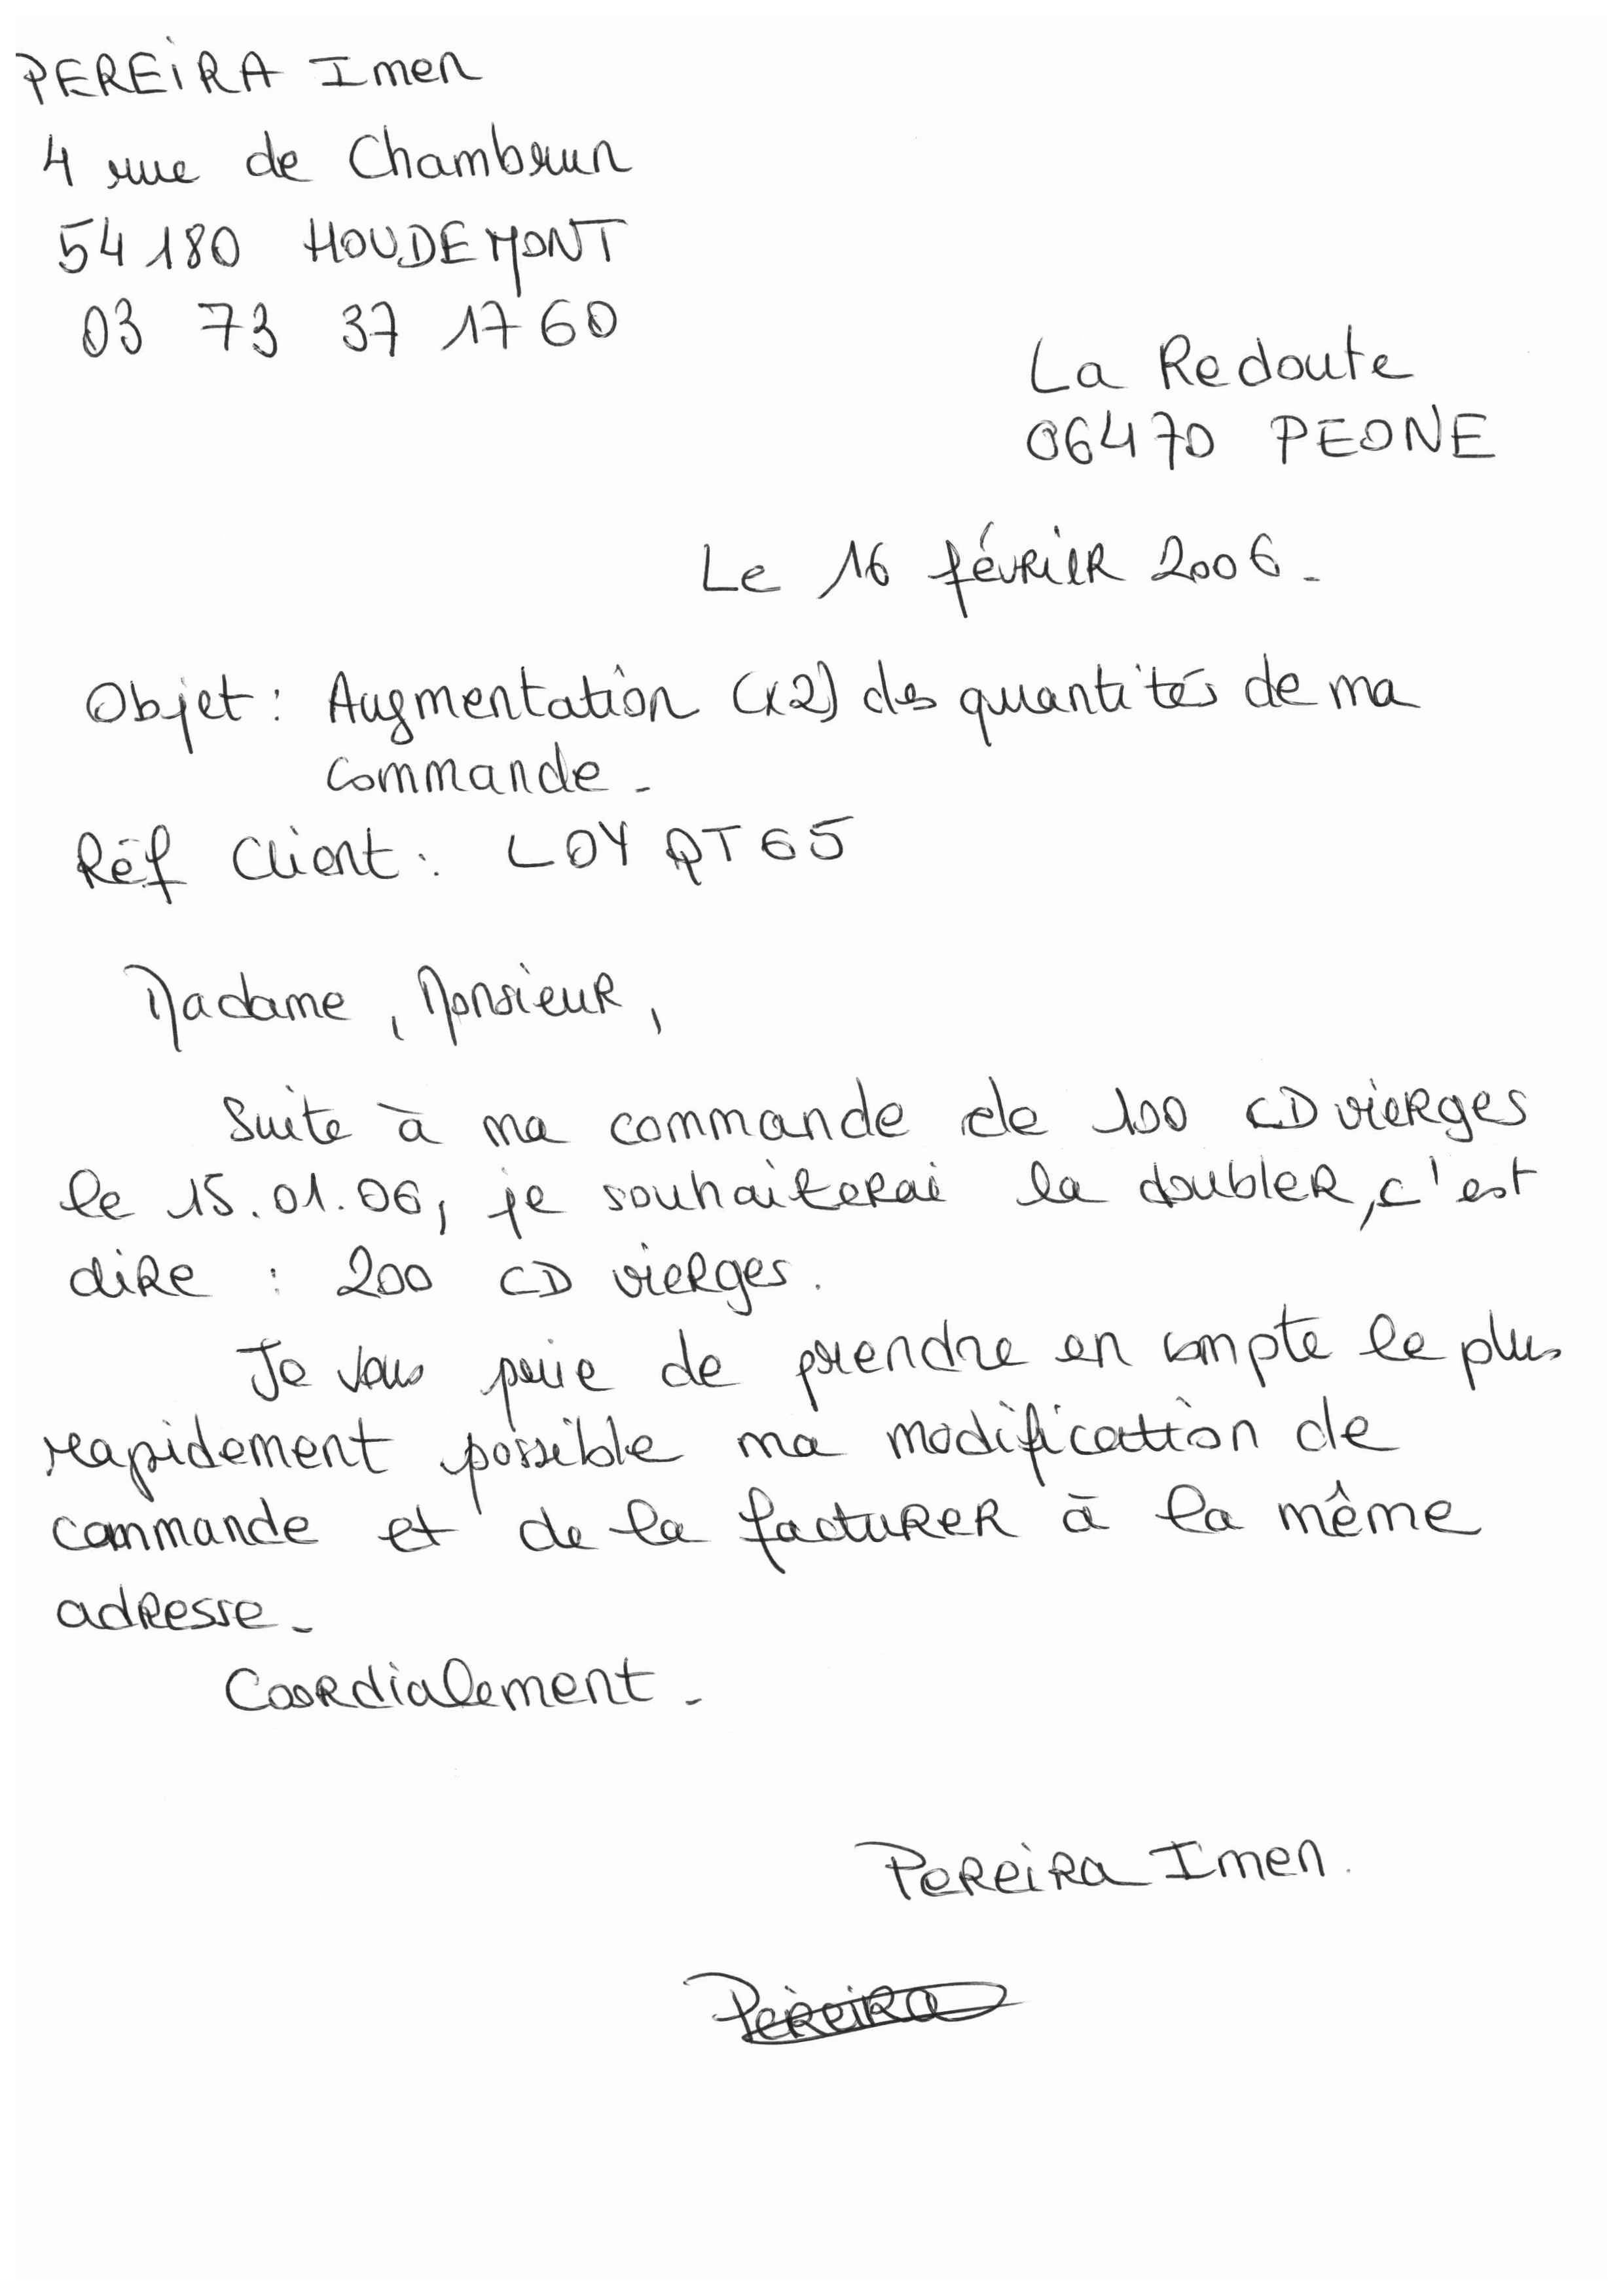 PEREIRA Imen
4 rue de Chambrun
54180 HOUDEMONT
03 73 37 17 60
La Redoute
06470 PEONE
Le 16 février 2006.
Objet : Augmentation (x2) des quantités de ma
commande.
Réf Client : LOYQT65
Madame, Monsieur,
Suite à ma commande de 100 CD vierges
le 15.01.06, je souhaiterai la doubler, c'est
dire : 200 CD vierges.
Je vous prie de prendre en compte le plus
rapidement possible ma modification de
commande et de la facturer à la même
adresse.
Coordialement.
Pereira Imen.
Pereira